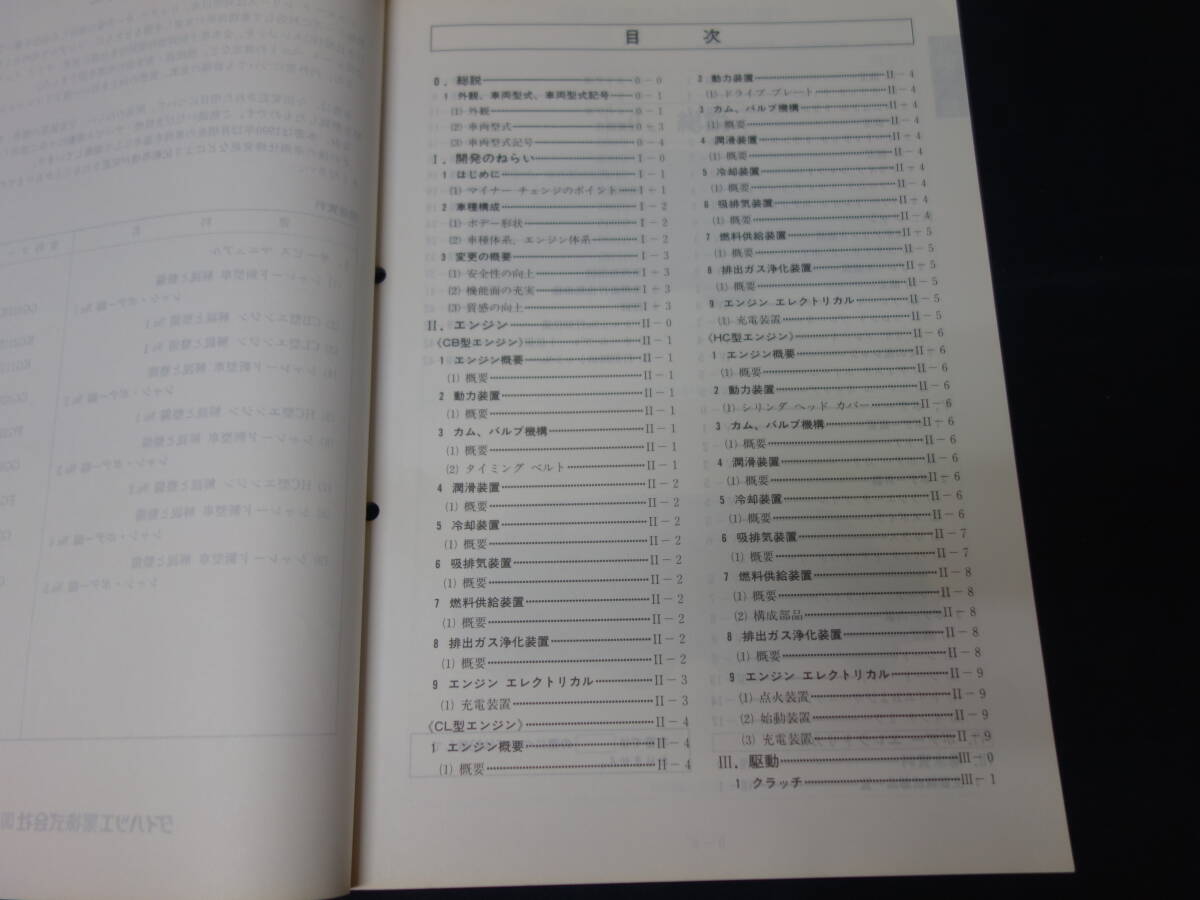 目 次
0. 総説……0－0
1 外観、車両型式、車両型式記号……0－1
(1) 外観……0－1
(2) 車両型式……0－3
(3) 車両型式記号……0－4
I. 開発のねらい……I－0
1 はじめに……I－1
(1) マイナー チェンジのポイント……I－1
2 車種構成……I－2
(1) ボデー形状……I－2
(2) 車種体系、エンジン体系……I－2
3 変更の概要……I－3
(1) 安全性の向上……I－3
(2) 機能面の充実……I－3
(3) 質感の向上……I－3
II. エンジン……II－0
《CB型エンジン》……II－1
1 エンジン概要……II－1
(1) 概要……II－1
2 動力装置……II－1
(1) 概要……II－1
3 カム、バルブ機構……II－1
(1) 概要……II－1
(2) タイミング ベルト……II－1
4 潤滑装置……II－2
(1) 概要……II－2
5 冷却装置……II－2
(1) 概要……II－2
6 吸排気装置……II－2
(1) 概要……II－2
7 燃料供給装置……II－2
(1) 概要……II－2
8 排出ガス浄化装置……II－2
(1) 概要……II－2
9 エンジン エレクトリカル……II－3
(1) 充電装置……II－3
《CL型エンジン》……II－4
1 エンジン概要……II－4
(1) 概要……II－4
2 動力装置……II－4
(1) ドライブ プレート……II－4
3 カム、バルブ機構……II－4
(1) 概要……II－4
4 潤滑装置……II－4
(1) 概要……II－4
5 冷却装置……II－4
(1) 概要……II－4
6 吸排気装置……II－4
(1) 概要……II－4
7 燃料供給装置……II－5
(1) 概要……II－5
8 排出ガス浄化装置……II－5
(1) 概要……II－5
9 エンジン エレクトリカル……II－5
(1) 充電装置……II－5
《HC型エンジン》……II－6
1 エンジン概要……II－6
(1) 概要……II－6
2 動力装置……II－6
(1) シリンダ ヘッド カバー……II－6
3 カム、バルブ機構……II－6
(1) 概要……II－6
4 潤滑装置……II－6
(1) 概要……II－6
5 冷却装置……II－6
(1) 概要……II－6
6 吸排気装置……II－7
(1) 概要……II－7
7 燃料供給装置……II－8
(1) 概要……II－8
(2) 構成部品……II－8
8 排出ガス浄化装置……II－8
(1) 概要……II－8
9 エンジン エレクトリカル……II－9
(1) 点火装置……II－9
(2) 始動装置……II－9
(3) 充電装置……II－9
III. 駆動……III－0
1 クラッチ……III－1